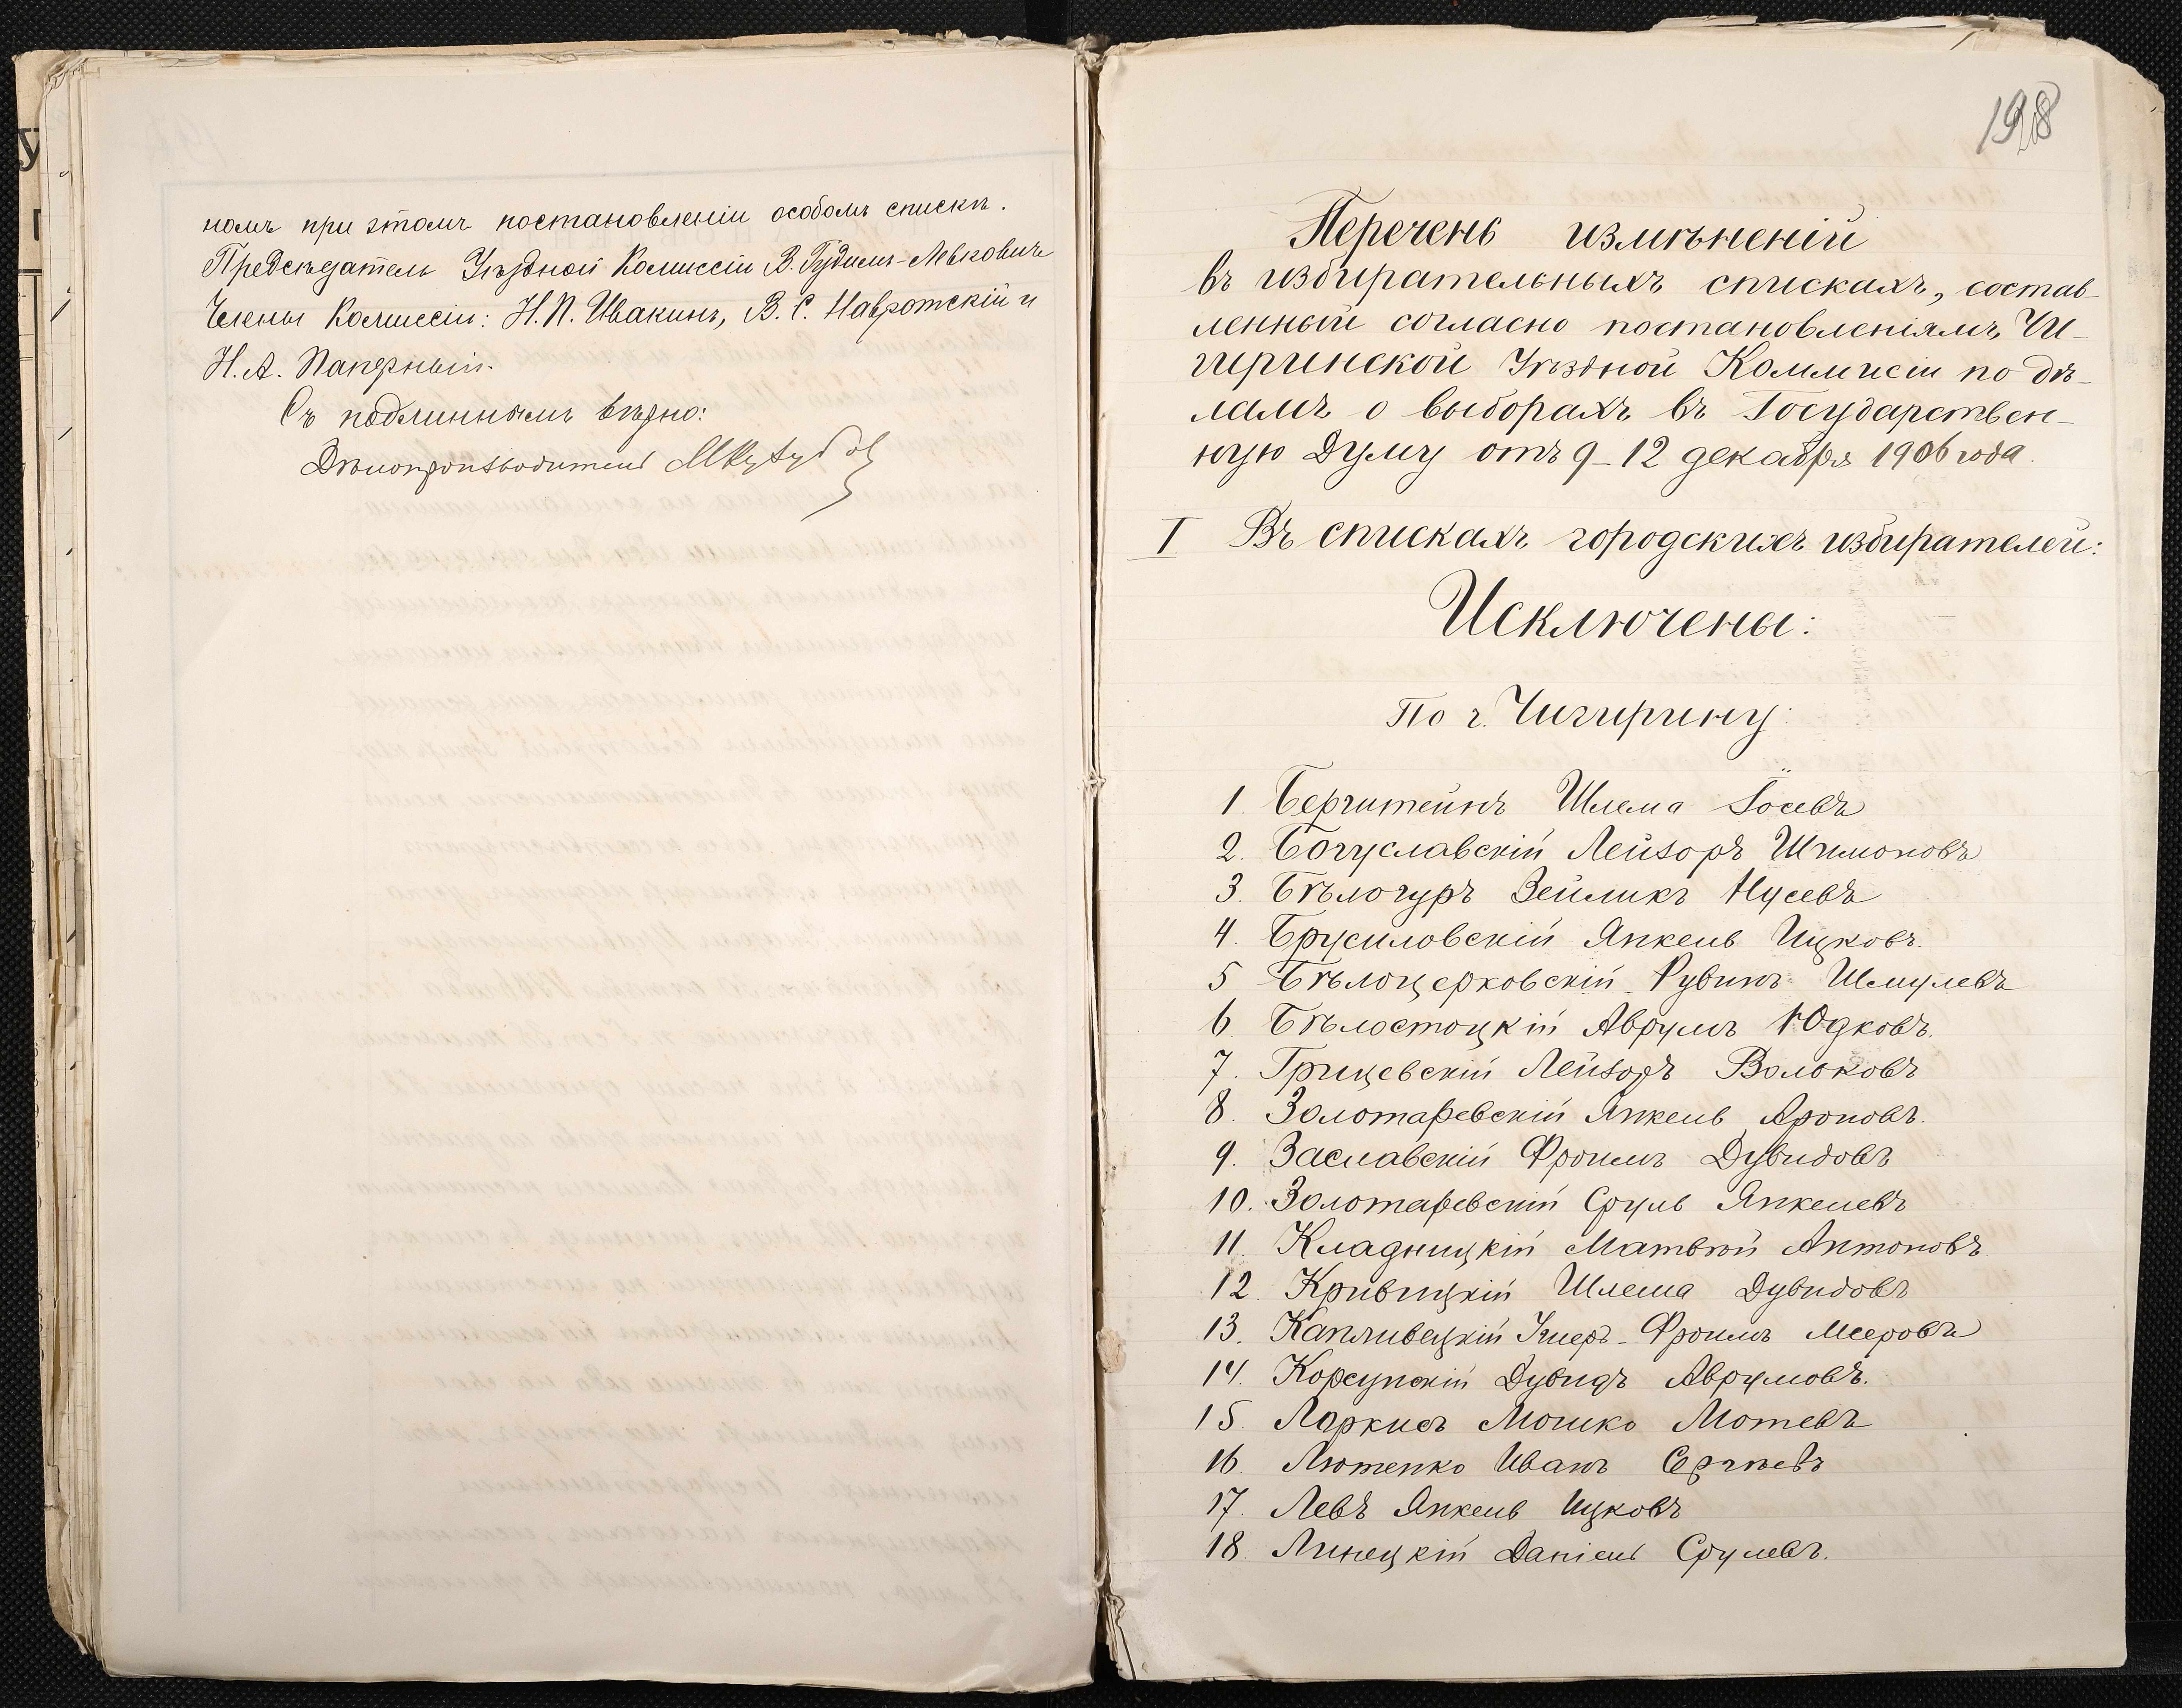 номъ при этомъ постановленіи особомъ спискѣ.
Предсѣдатель Уѣздной Комиссіи В. Гудимъ-Левковичъ
Члены Комиссіи: Н. П. Ивакинъ, В. С. Навротскій и
Н. А. Паперный.
Съ подлиннымъ вѣрно:
Дѣлопроизводитель
198
Перечень измѣненій
въ избирательныхъ спискахъ, состав-
ленный согласно постановленіямъ Чи-
гиринской Уѣздной Коммисіи по дѣ-
ламъ о выборахъ въ Государствен-
ную Думу отъ 9-12 декабря 1906 года.
I Въ спискахъ городскихъ избирателей:
Исключены:
По г. Чигирину:
1 Бергштейнъ Шлема Іосевъ
2. Богуславскій Лейзоръ Шимоновъ
3. Бѣлогуръ Зейликъ Нусевъ
4. Брусиловскій Янкель Ицковъ.
5 Бѣлоцерковскій Рувинъ Шмулевъ
6 Бѣлостоцкій Аврумъ Юдковъ.
7. Грицевскій Лейзоръ Вольковъ
8. Золотаревскій Янкель Ароновъ.
9. Заславскій Фроимъ Дувидовъ
10. Золотаревскій Сруль Янкелевъ
11. Кладницкій Матвѣй Антоновъ
12. Кривицкій Шлема Дувидовъ
13. Капливецкій Ушеръ-Фроимъ Мееровъ
14. Корсунскій Дувидъ Аврумовъ.
15. Ларкисъ Мошко Мотевъ
16 Лютенко Иванъ Сергѣевъ
17. Левъ Янкель Ицковъ
18. Линецкій Даніель Срулевъ.